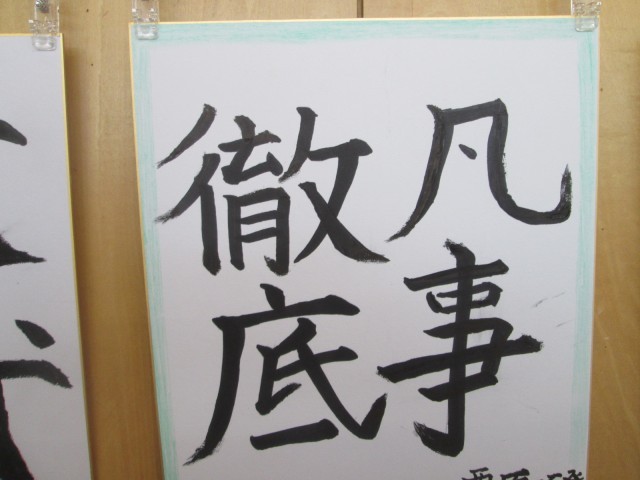 凡事
徹底